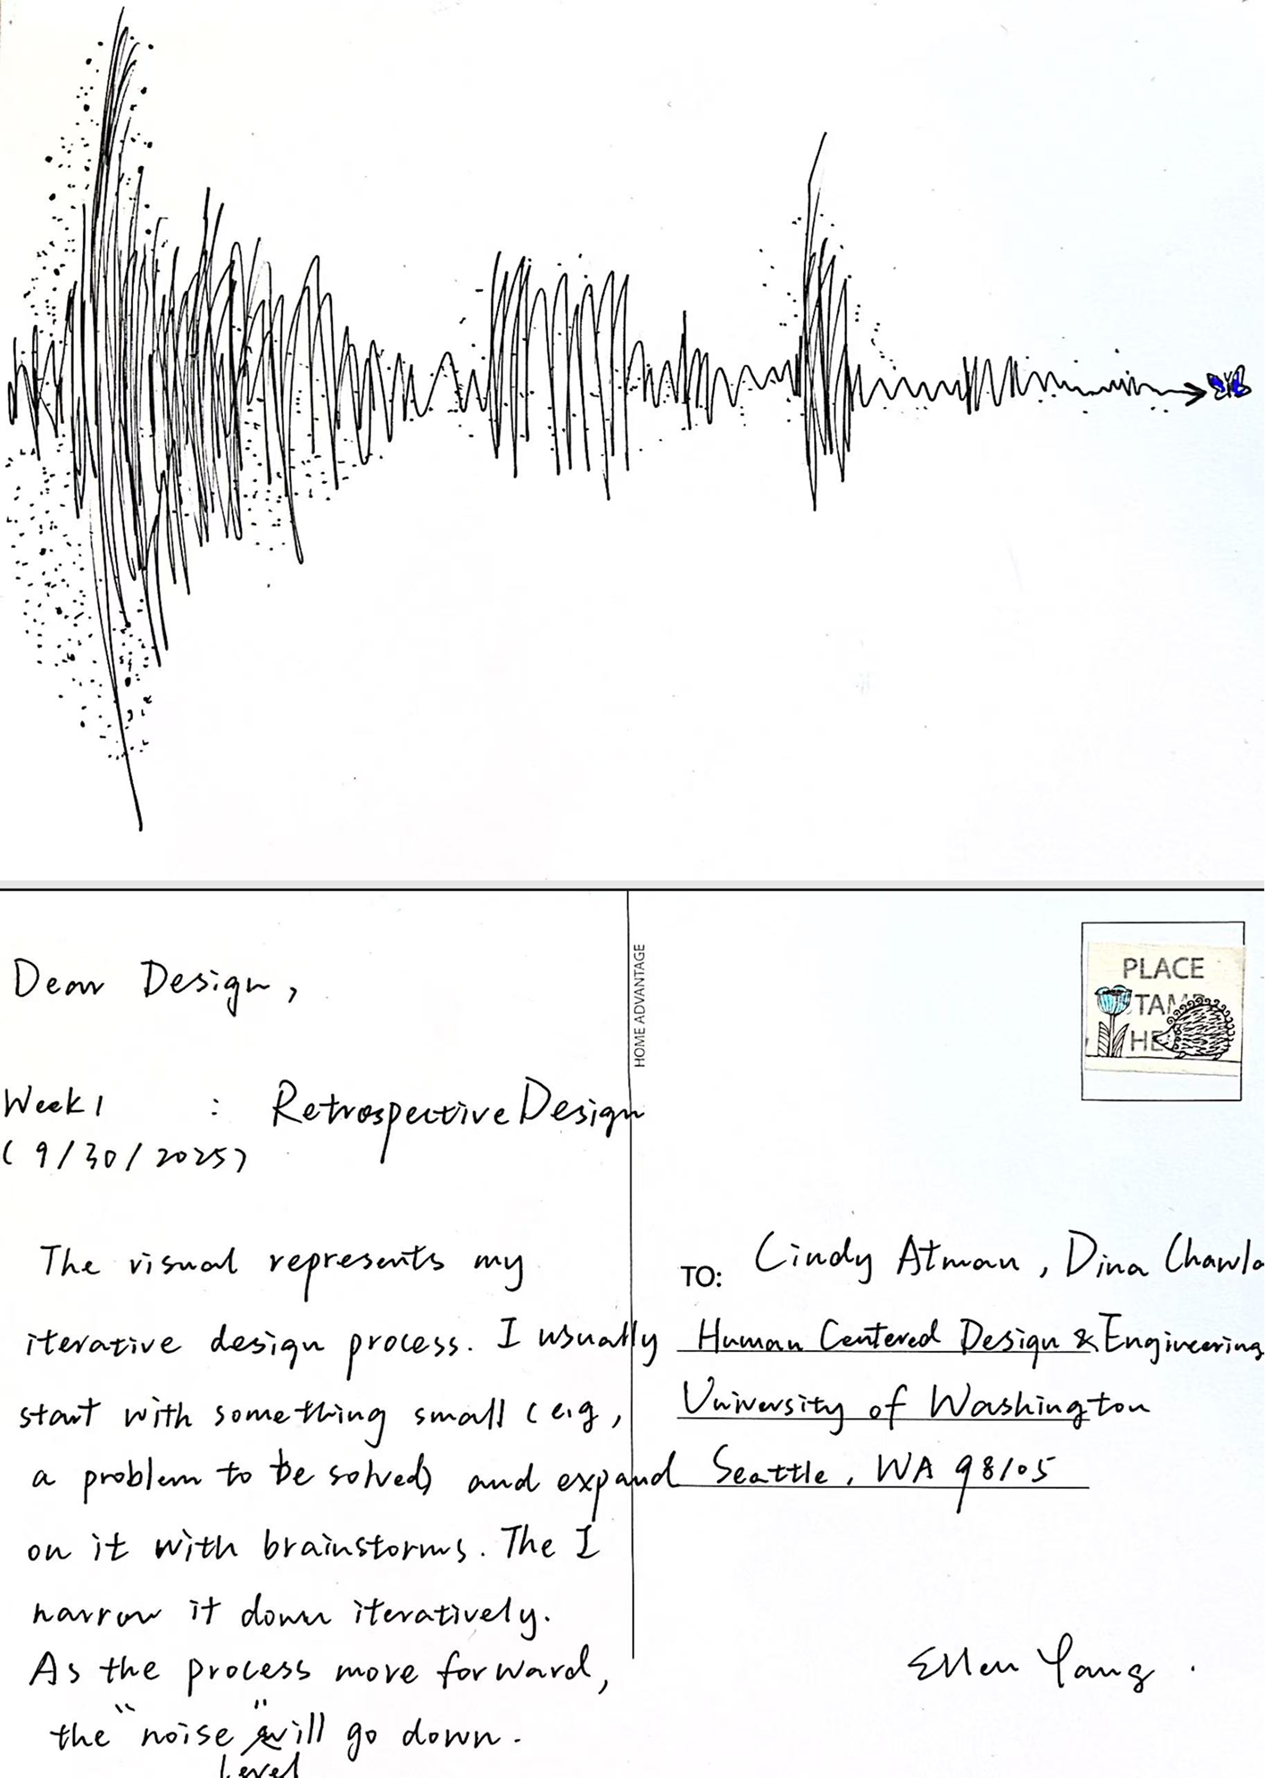 Dear Design,
Week 1 : Retrospective Design
(9/30/2025)
The visual represents my
iterative design process. I usually
start with something small (e.g,
a problem to be solved) and expand
on it with brainstorms. The I
narrow it down iteratively.
As the process move forward,
the "noise" will go down.
level
HOME ADVANTAGE
PLACE
STAMP
HE
TO: Cindy Atman, Dina Chawla
Human Centered Design & Engineering
University of Washington
Seattle, WA 98105
Ellen Yang.